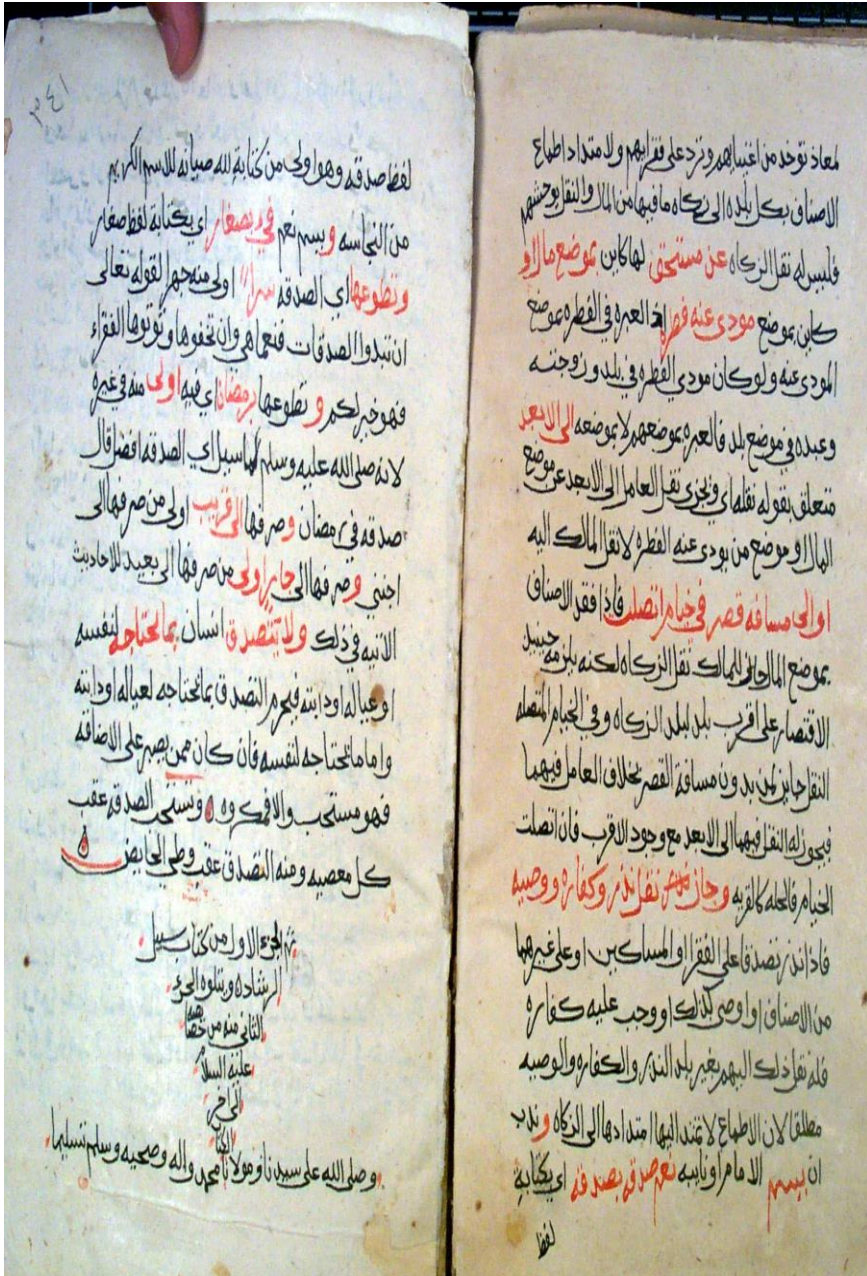 لمعاذ توخد من اغنيايهم وترد على فقرايهم ولامتداد اطماع
الاصناف بكل بلده الى زكاه ما فيها من المال والنقل يوحشهم
فليس له نقل الزكاه عن مستحق لها كاين بموضع مال او
كاين بموضع مودى عنه فطره اذ العبره في الفطره بموضع
المودى عنه ولو كان مودى الفطره في بلد وزوجته
وعبده في موضع بلد فالعبره بموضعهم لا بموضعه الى الابعد
متعلق بقوله نقله اي ويجزى نقل العامل الى الابعد عن موضع
المال او موضع من يودى عنه الفطره لا نقل المالك اليه
او الى مسافه قصر في خيام اتصلت فاذا فقد الاصناف
بموضع المال جاز للمالك نقل الزكاه لكنه يلزمه حينيد
الاقتصار على اقرب بلد لبلد الزكاه وفي الخيام المتصله
النقل جايز بدون مسافة القصر بخلاف العامل فيهما
فيجوز له النقل فيهما الى الابعد مع وجود الاقرب فان اتصلت
الخيام فالحله كالقريه وجاز نقل نذر وكفاره ووصيه
فاذا نذر تصدقا على الفقرا او المساكين او على غيرهما
من الاصناف او اوصى بذلك او وجب عليه كفاره
فله نقل ذلك اليهم بغير بلد النذر والكفاره والوصيه
مطلقا لان الاطماع لا تمتد اليها امتدادها الى الزكاه وندب
ان يسم الامام او نايبه نعم صدقه بصدقه اي بكتابة
لفظ
لفظ صدقه وهو اولى من كتابة لله صيانه للاسم الكريم
من النجاسه ويسم نعم في بصغار اي بكتابة لفظ صغار
وتطوعها اي الصدقه سرا اولى منه جهرا لقوله تعالى
ان تبدوا الصدقات فنعما هي وان تخفوها وتوتوها الفقراء
فهو خير لكم وتطوعها برمضان اي فيه اولى منه في غيره
لانه صلى الله عليه وسلم لما سيل اي الصدقه افضل قال
صدقه في رمضان وصرفها الى قريب اولى من صرفها الى
اجنبي وصرفها الى جار اولى من صرفها الى بعيد للاحاديث
الاتيه في ذلك ولا يتصدق انسان بما يحتاجه لنفسه
او عياله او دابته فيحرم التصدق بما يحتاجه لعياله او دابته
واما ما يحتاجه لنفسه فان كان ممن يصبر على الاضاقه
فهو مستحب والا فمكروه وتستحب الصدقه عقب
كل معصيه ومنه التصدق عقب وطي الحايض
تم الجزء الاول من كتاب سبيل
الرشاد ويتلوه الجزء
الثاني منه من
عليه السلام
الى اخر
الكتاب
وصلى الله على سيدنا ومولانا محمد واله وصحبه وسلم تسليما